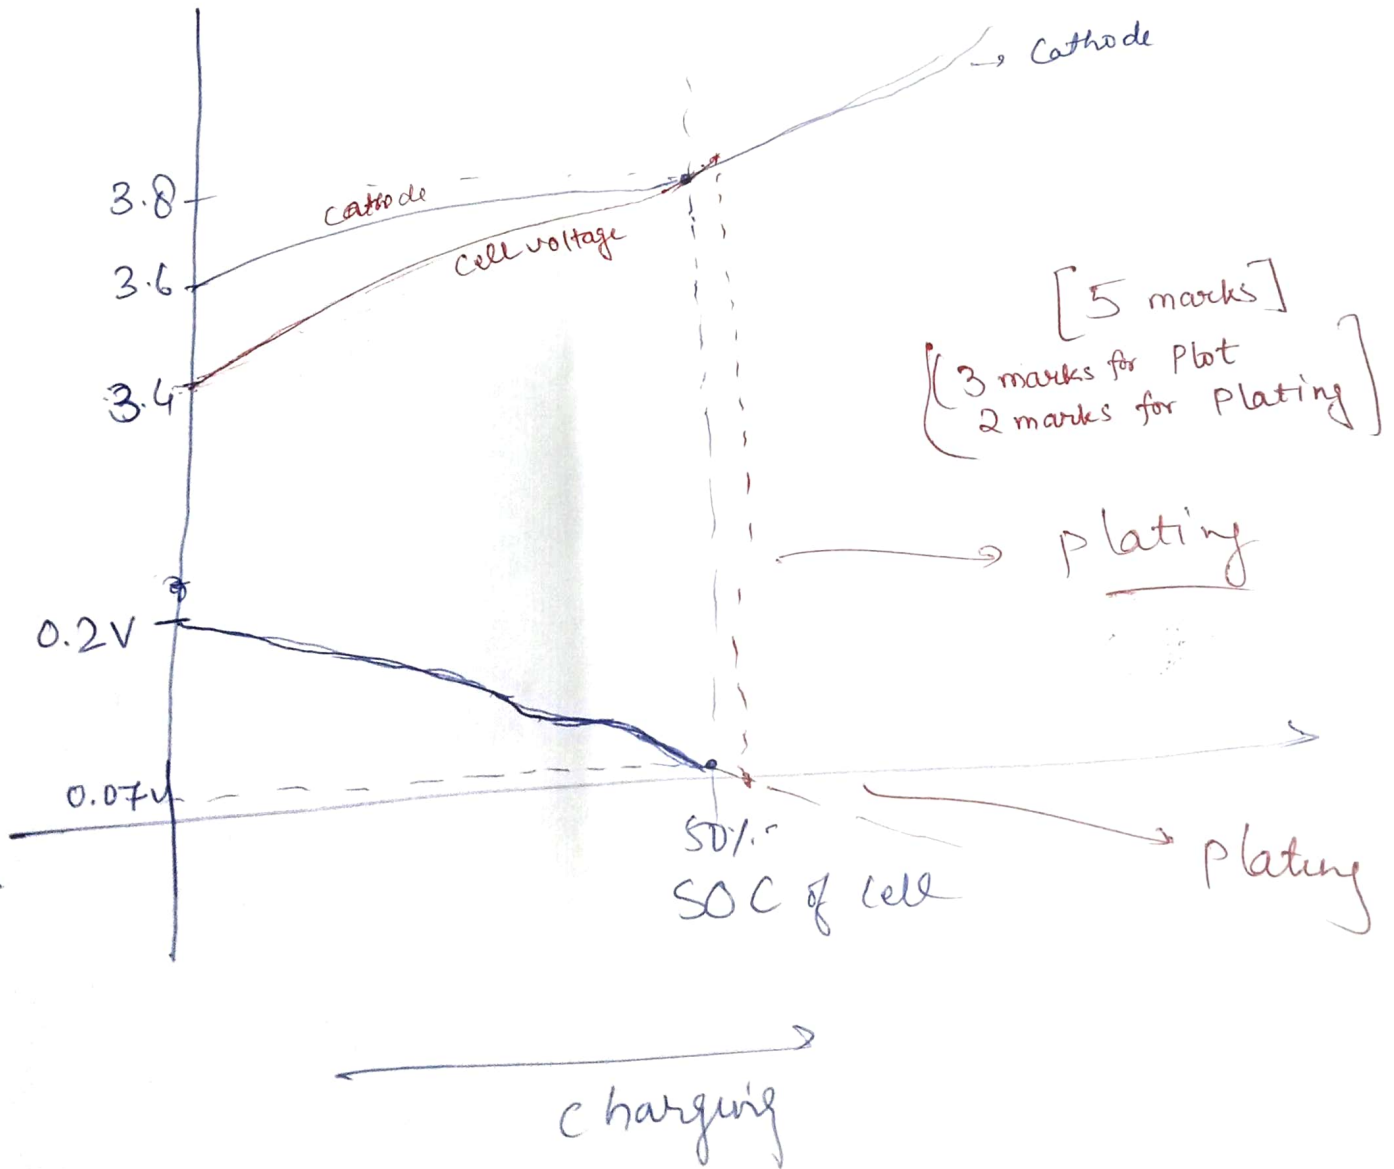 → Cathode
3.8
Cathode
cell voltage
3.6
3.4
[5 marks]
[3 marks for Plot
2 marks for Plating]
plating
0.2V
0.07V
50%
SOC of cell
Plating
Charging